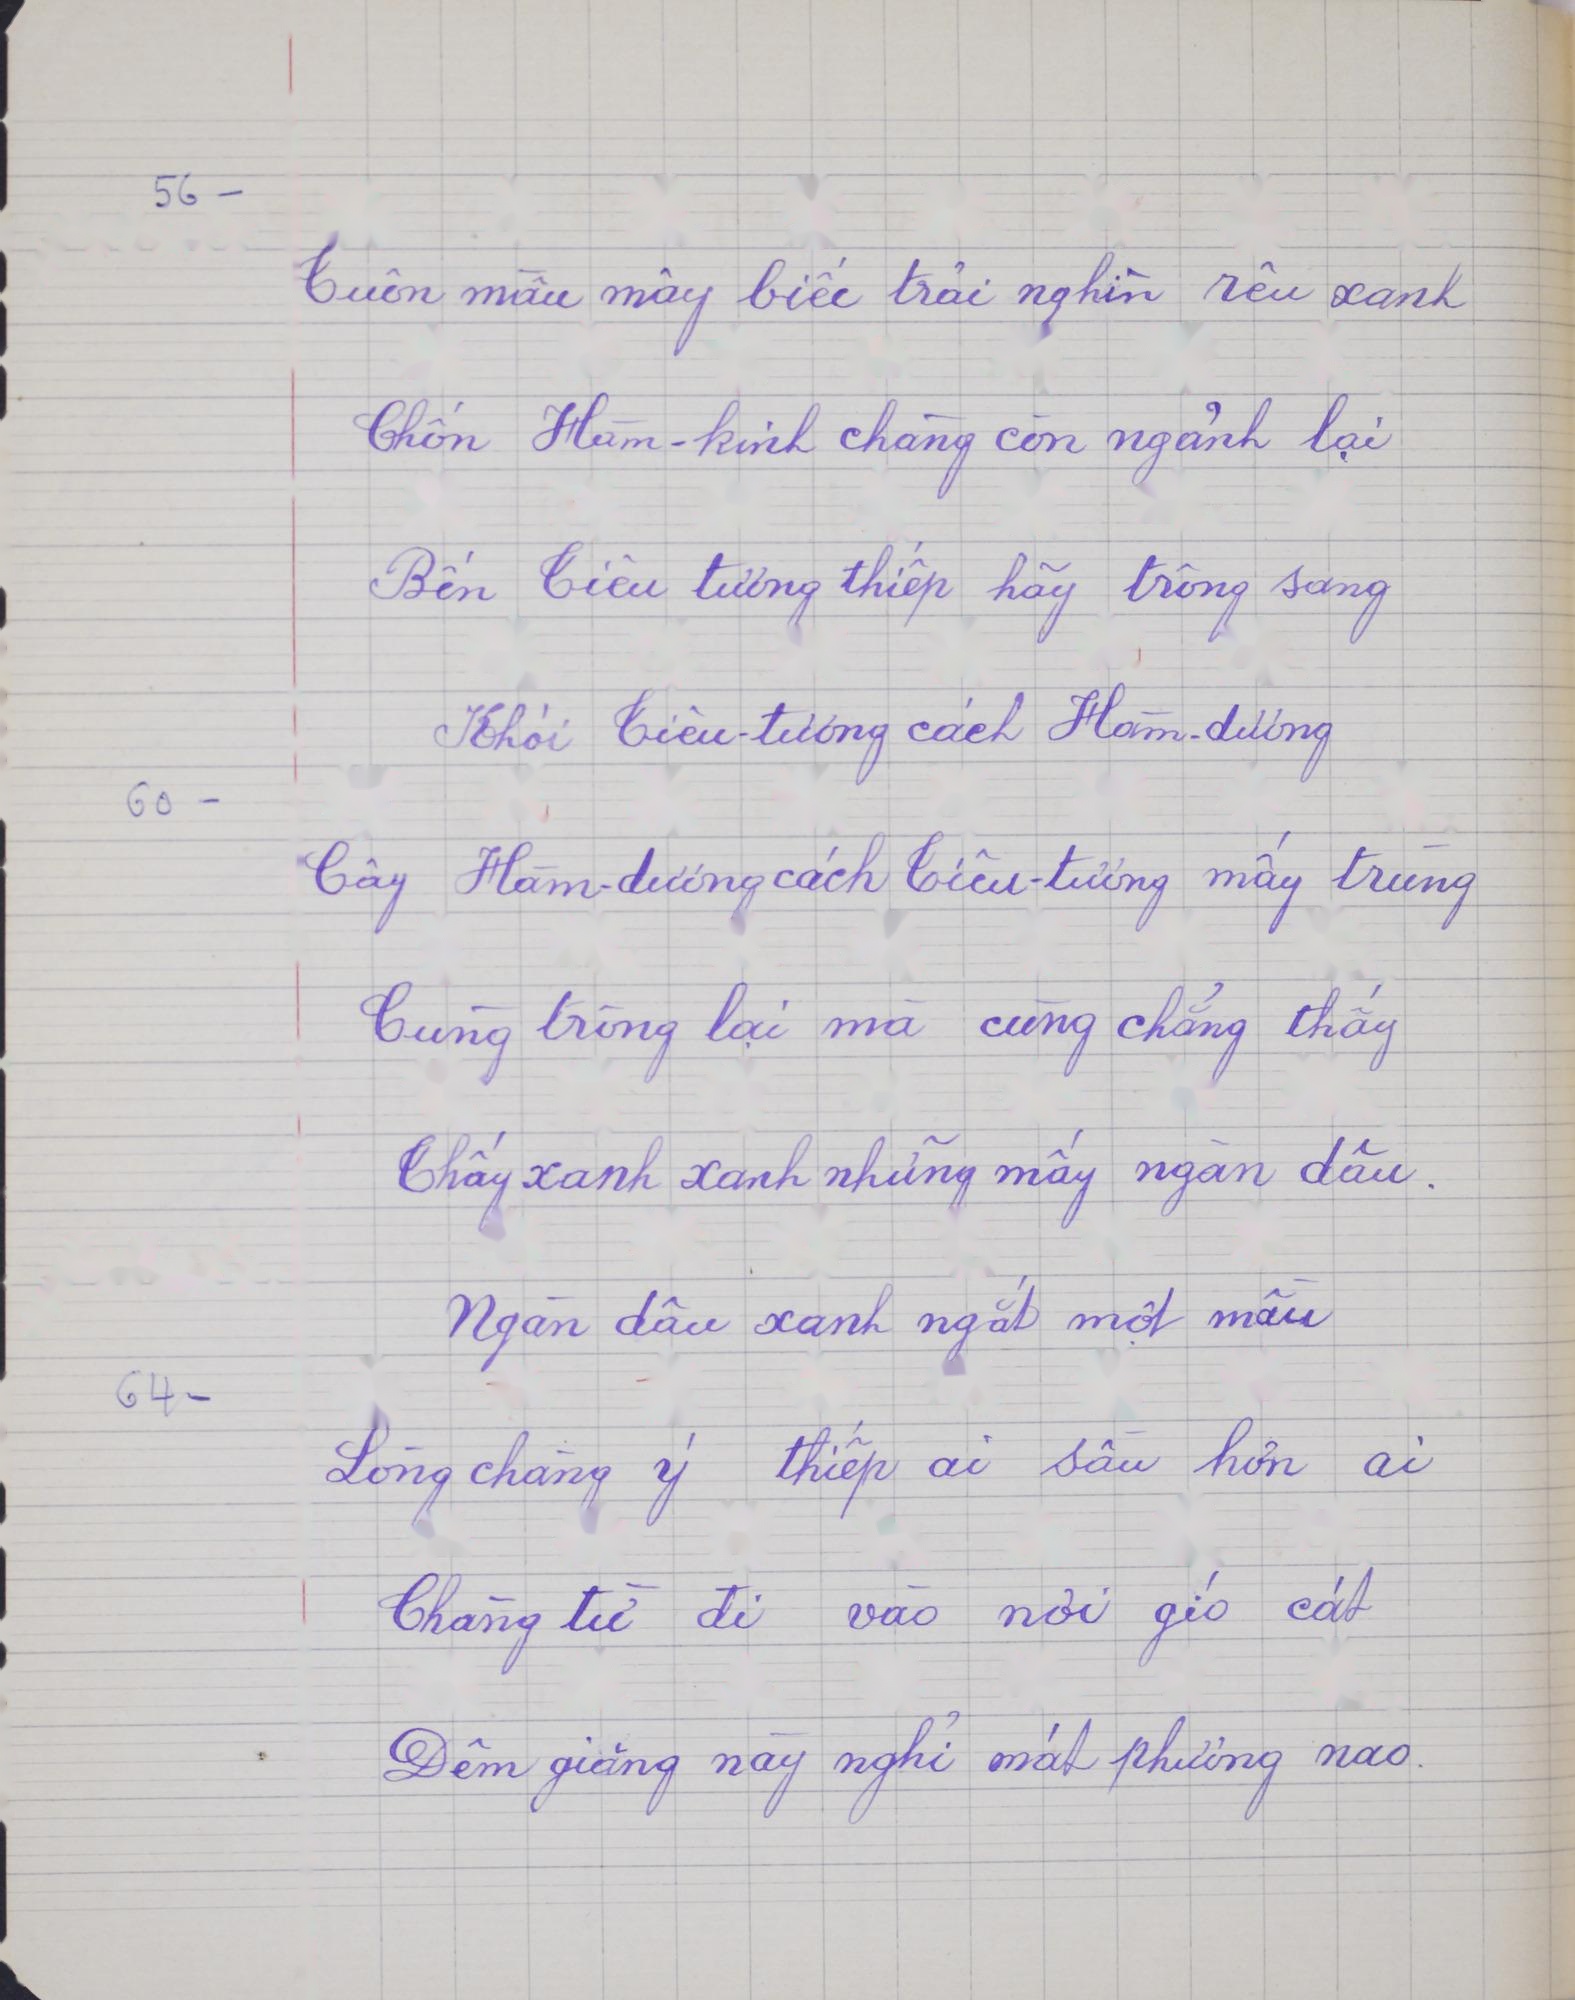 56 -
Tuôn mầu mây biếc trải nghìn rêu xanh
Chốn Hàm-kinh chàng còn ngảnh lại
Bến Tiêu tương thiếp hãy trông sang
Khói Tiêu-tương cách Hàm-dương
60 -
Cây Hàm-dương cách Tiêu-tương mấy trùng
Cùng trông lại mà cùng chẳng thấy
Thấy xanh xanh những mấy ngàn dâu.
Ngàn dâu xanh ngắt một mầu
64 -
Lòng chàng ý thiếp ai sầu hơn ai
Chàng từ đi vào nơi gió cát
Đêm giăng này nghỉ mát phương nao.